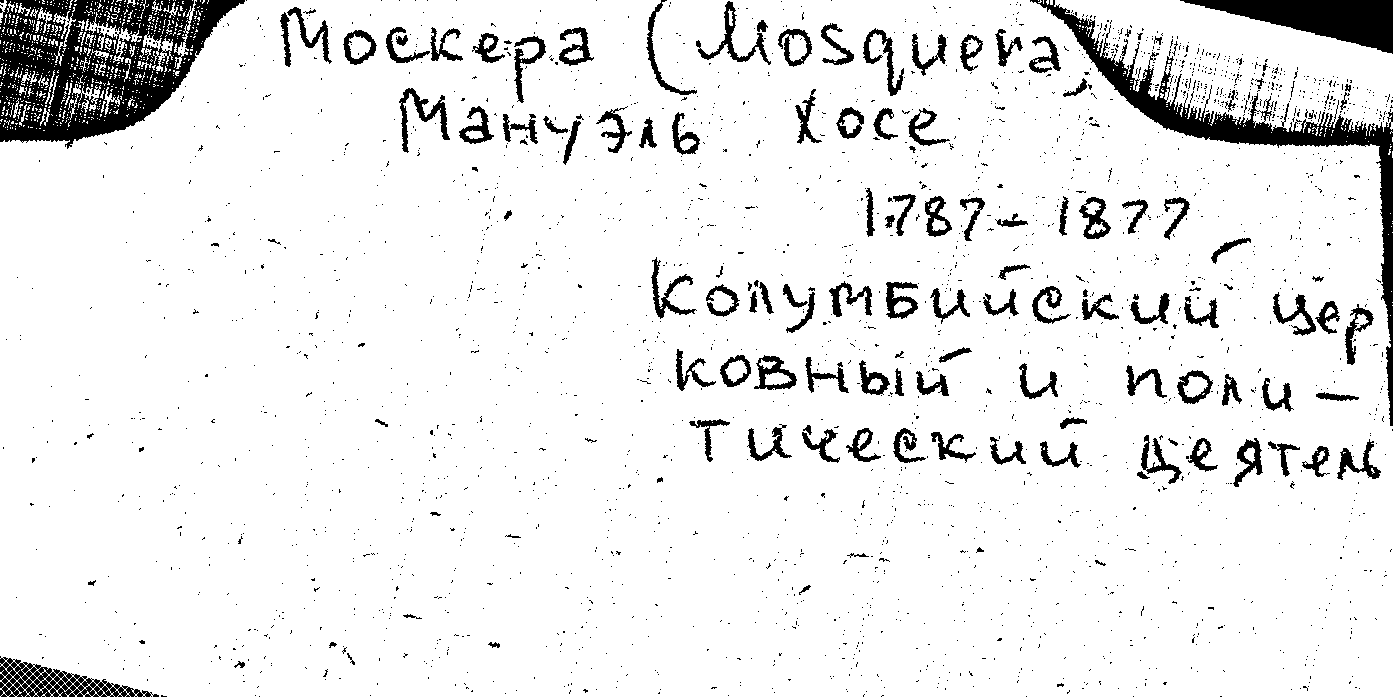 Москера (Mosquera)
Мануэль Хосе
1787 – 1877
Колумбийский цер
ковный и поли –
тический деятель